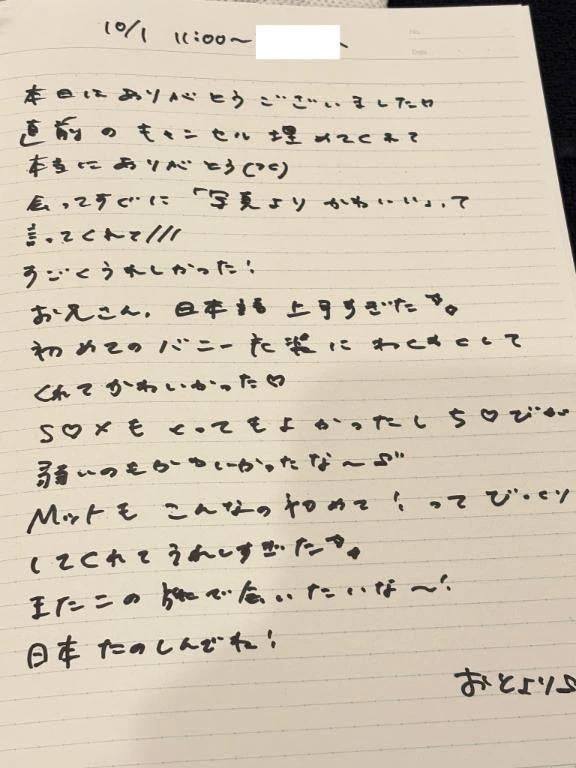 10/1 11:00〜
No.
Date
本日はありがとうございました♡
直前のキャンセル埋めてくれて
本当にありがとう(><)
会ってすぐに「写真よりかわいい」って
言ってくれて///
すごくうれしかった!
お兄さん、日本語上手すぎた
初めてのバニー衣装にわくわくして
くれてかわいかった♡
S♡Xもとってもよかったしち♡びが
弱いのもかわいかったな〜
Mットもこんなの初めて!ってびっくり
してくれてうれしすぎた
またこの旅で会いたいな〜!
日本たのしんでね!
おとより